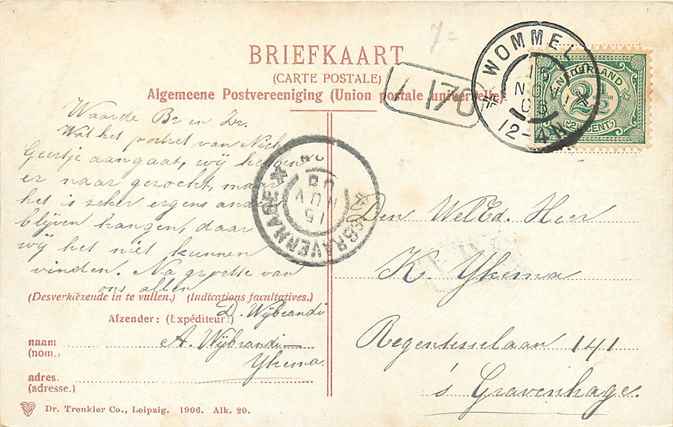 BRIEFKAART
(CARTE POSTALE)
Algemeene Postvereeniging (Union postale universelle).
L 170
WOMMEL
12-4N
NEDERLAND
2½
CENT
'SGRAVENHAGE
Waarde Br en Zr.
Wat het portret van Nicht
Geertje aangaat, wij hebben
er naar gezocht, maar
het is zeker ergens anders
blijven hangen, daar
wij het niet kunnen
vinden. Na groetse van
ons allen
D. Wijbrandi
A. Wijbrandi—
Ykema
(Desverkiezende in te vullen.) (Indications facultatives.)
Afzender: (Expéditeur:)
naam
(nom.)
adres.
(adresse.)
Den WelEd. Heer
K Ykema
Regentesselaan 141
's Gravenhage.
Dr. Trenkler Co., Leipzig. 1906. Alk. 20.